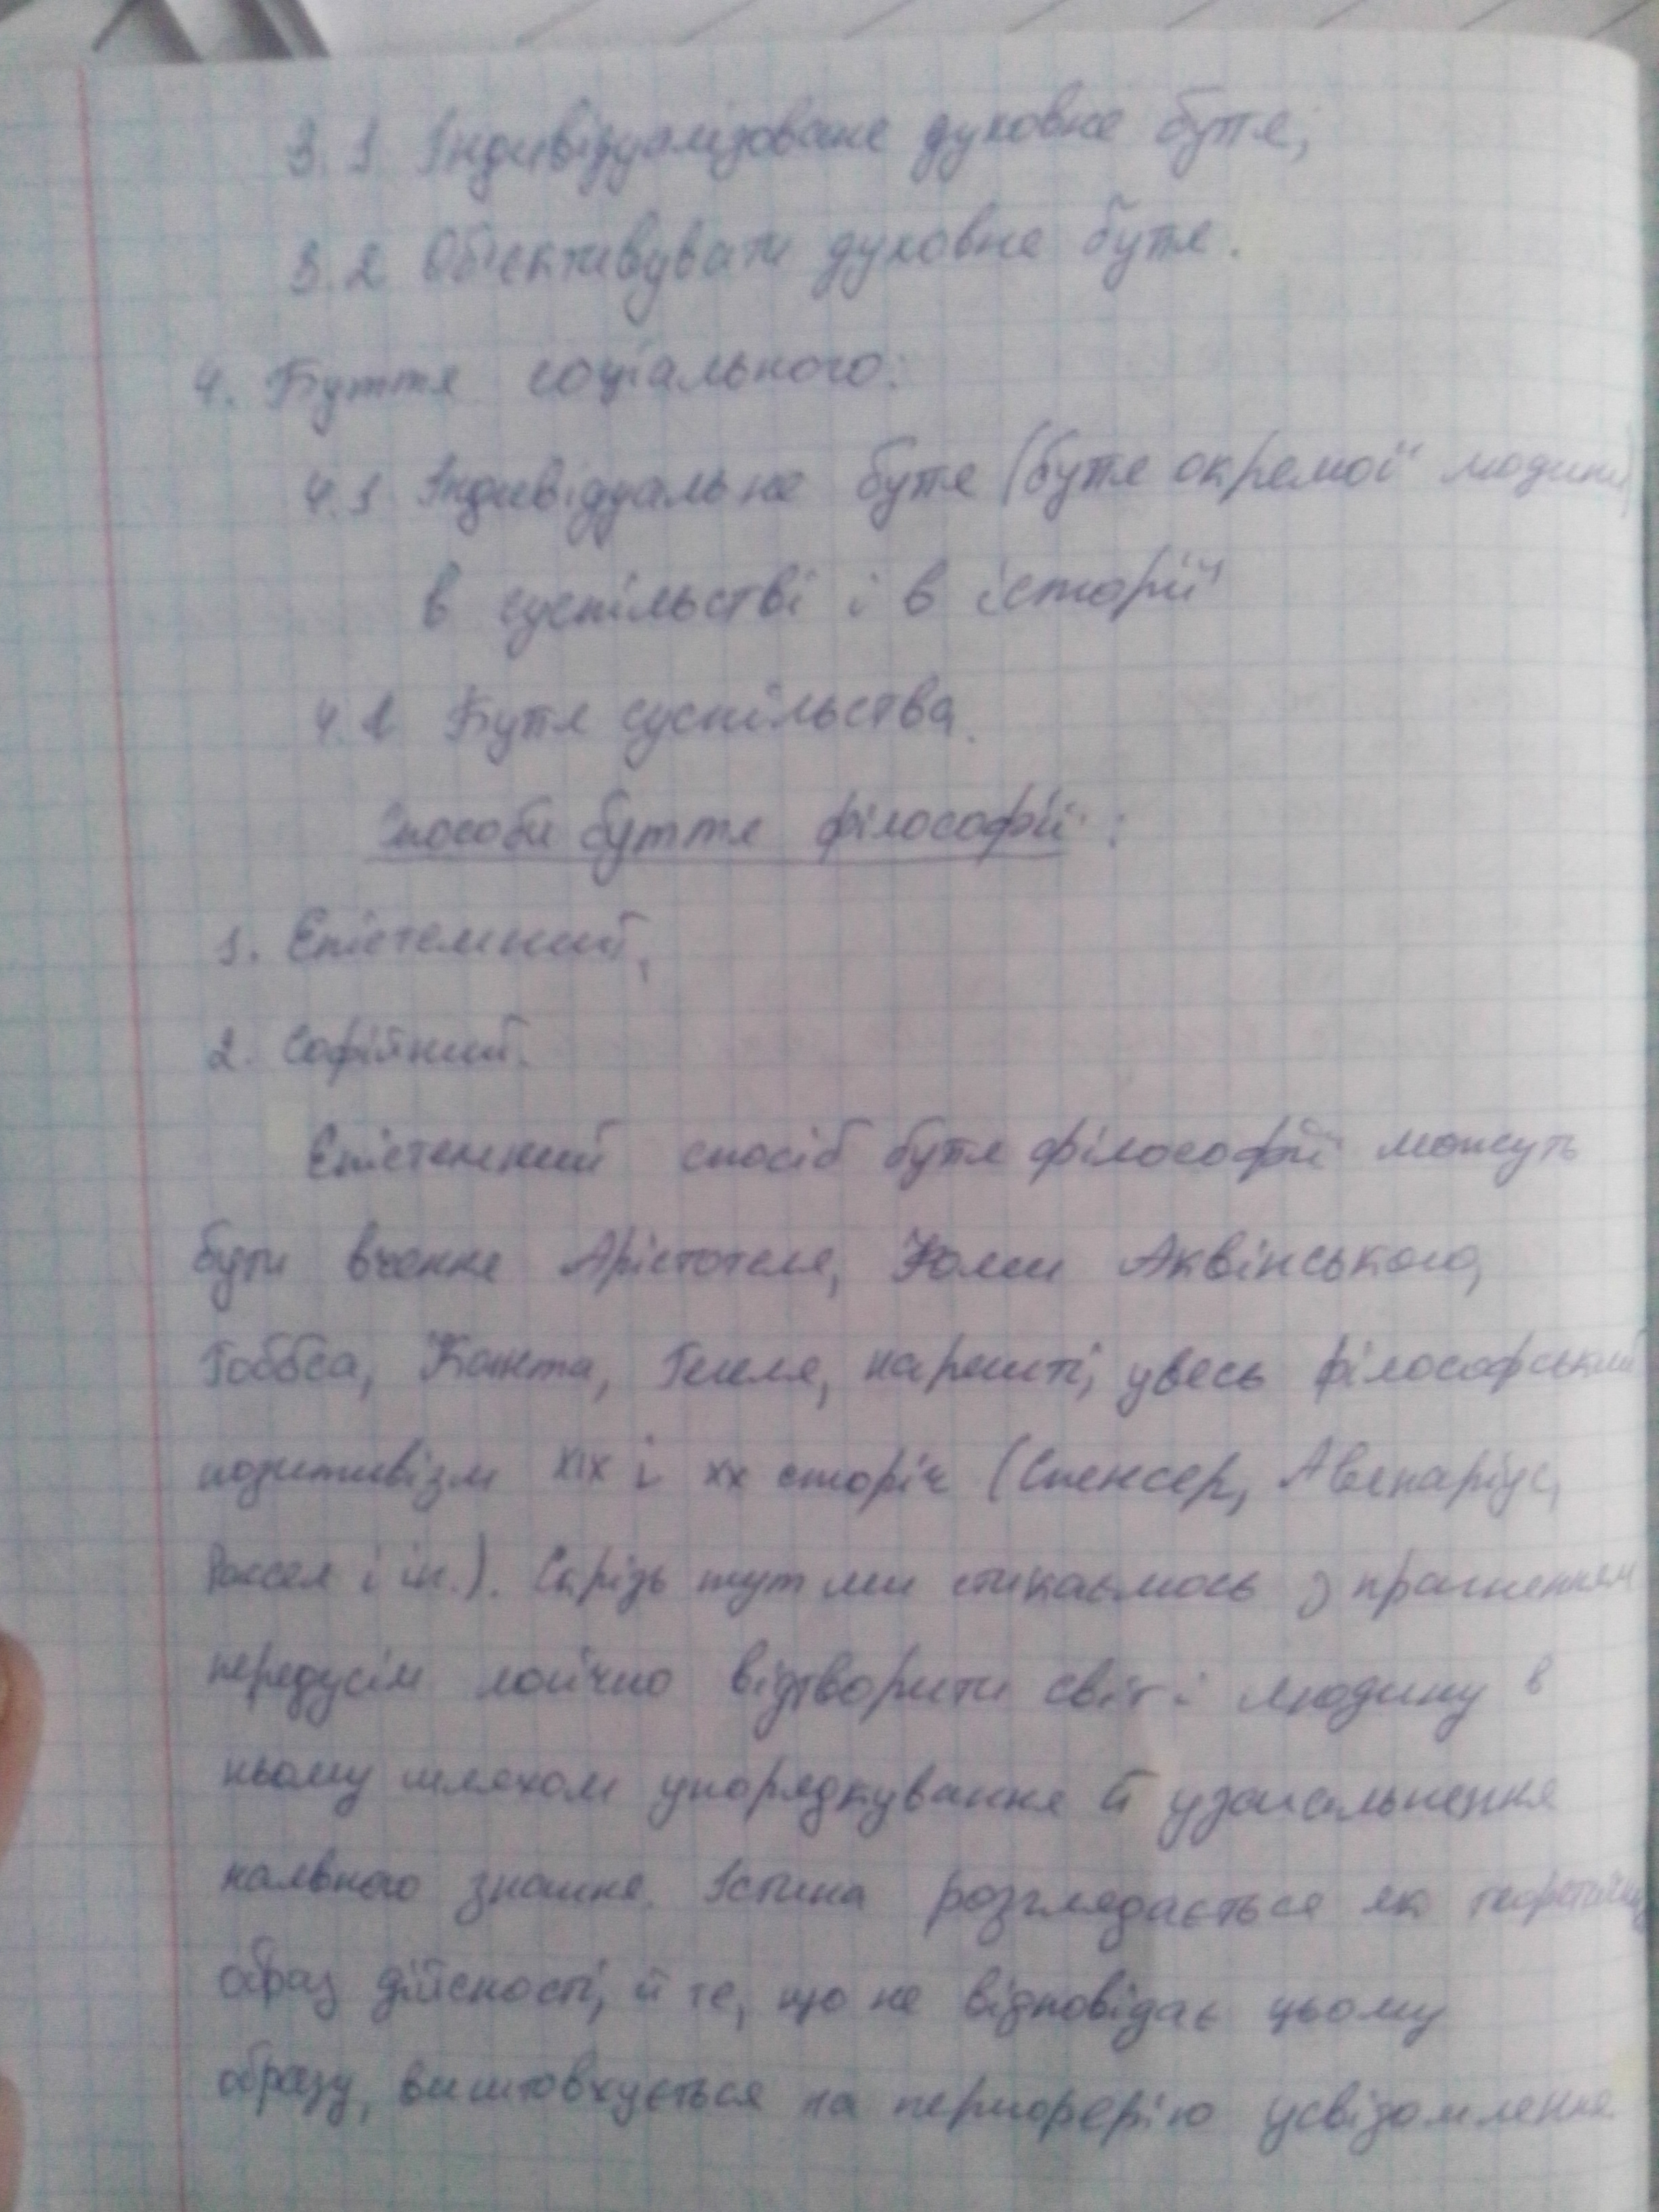 3.1 Індивідуалізоване духовне буття;
3.2 Об'єктивувати духовне буття.
4. Буття соціального:
4.1 Індивідуальне буття (буття окремої людини)
в суспільстві і в історії
4.2 Буття суспільства.
Способи буття філософії:
1. Епістемний;
2. Софійний.
Епістемний спосіб буття філософії можуть
бути вчення Арістотеля, Фоми Аквінського,
Гоббса, Канта, Гегеля, нарешті, увесь філософський
позитивізм XIX і XX сторіч (Спенсер, Авенаріус,
Рассел і ін.). Скрізь тут ми стикаємось з прагненням
передусім логічно відтворити світ і людину в
ньому шляхом упорядкування й узагальнення
наявного знання. Істина розглядається як теоретичний
образ дійсності, й те, що не відповідає цьому
образу, виштовхується на периферію усвідомлення